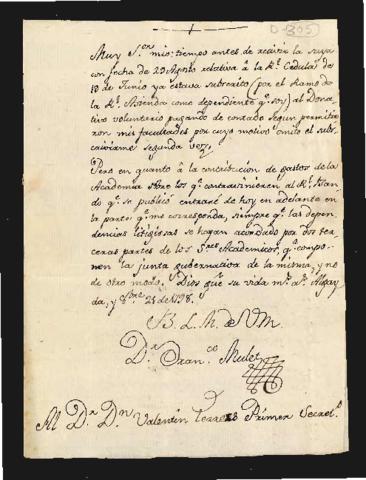 D-305
Muy Sor. mio: tiempo antes de recivir la suya
con fecha de 29 Agosto relativa â la Rl. Cedula de
10 de Junio ya estava subscrito (por el Ramo de
la Rl. Hazienda como dependiente q. soy) al Dona-
tivo voluntario pagando de contado segun permitie-
ron mis facultades por cuyo motivo omito el subs-
crivirme segunda vez.
Pero en quanto â la contribucion de gastos de la
Academia sobre los q. contravinieren al Rl. Ban-
do q. se publicó entraré de hoy en adelante en
la parte q. me corresponda, siempre q. las depen-
dencias litigiosas se hagan acordado por dos ter-
ceras partes de los Sres. Academicos, q. compo-
nen la junta gubernativa de la misma, y no
de otro modo. Dios gue. su vida ms. as.
da, y 1798.
B. L. M. de VM.
Dr. Franco. Mulet
Al Dr. Dn. Valentin Primer Secreto.